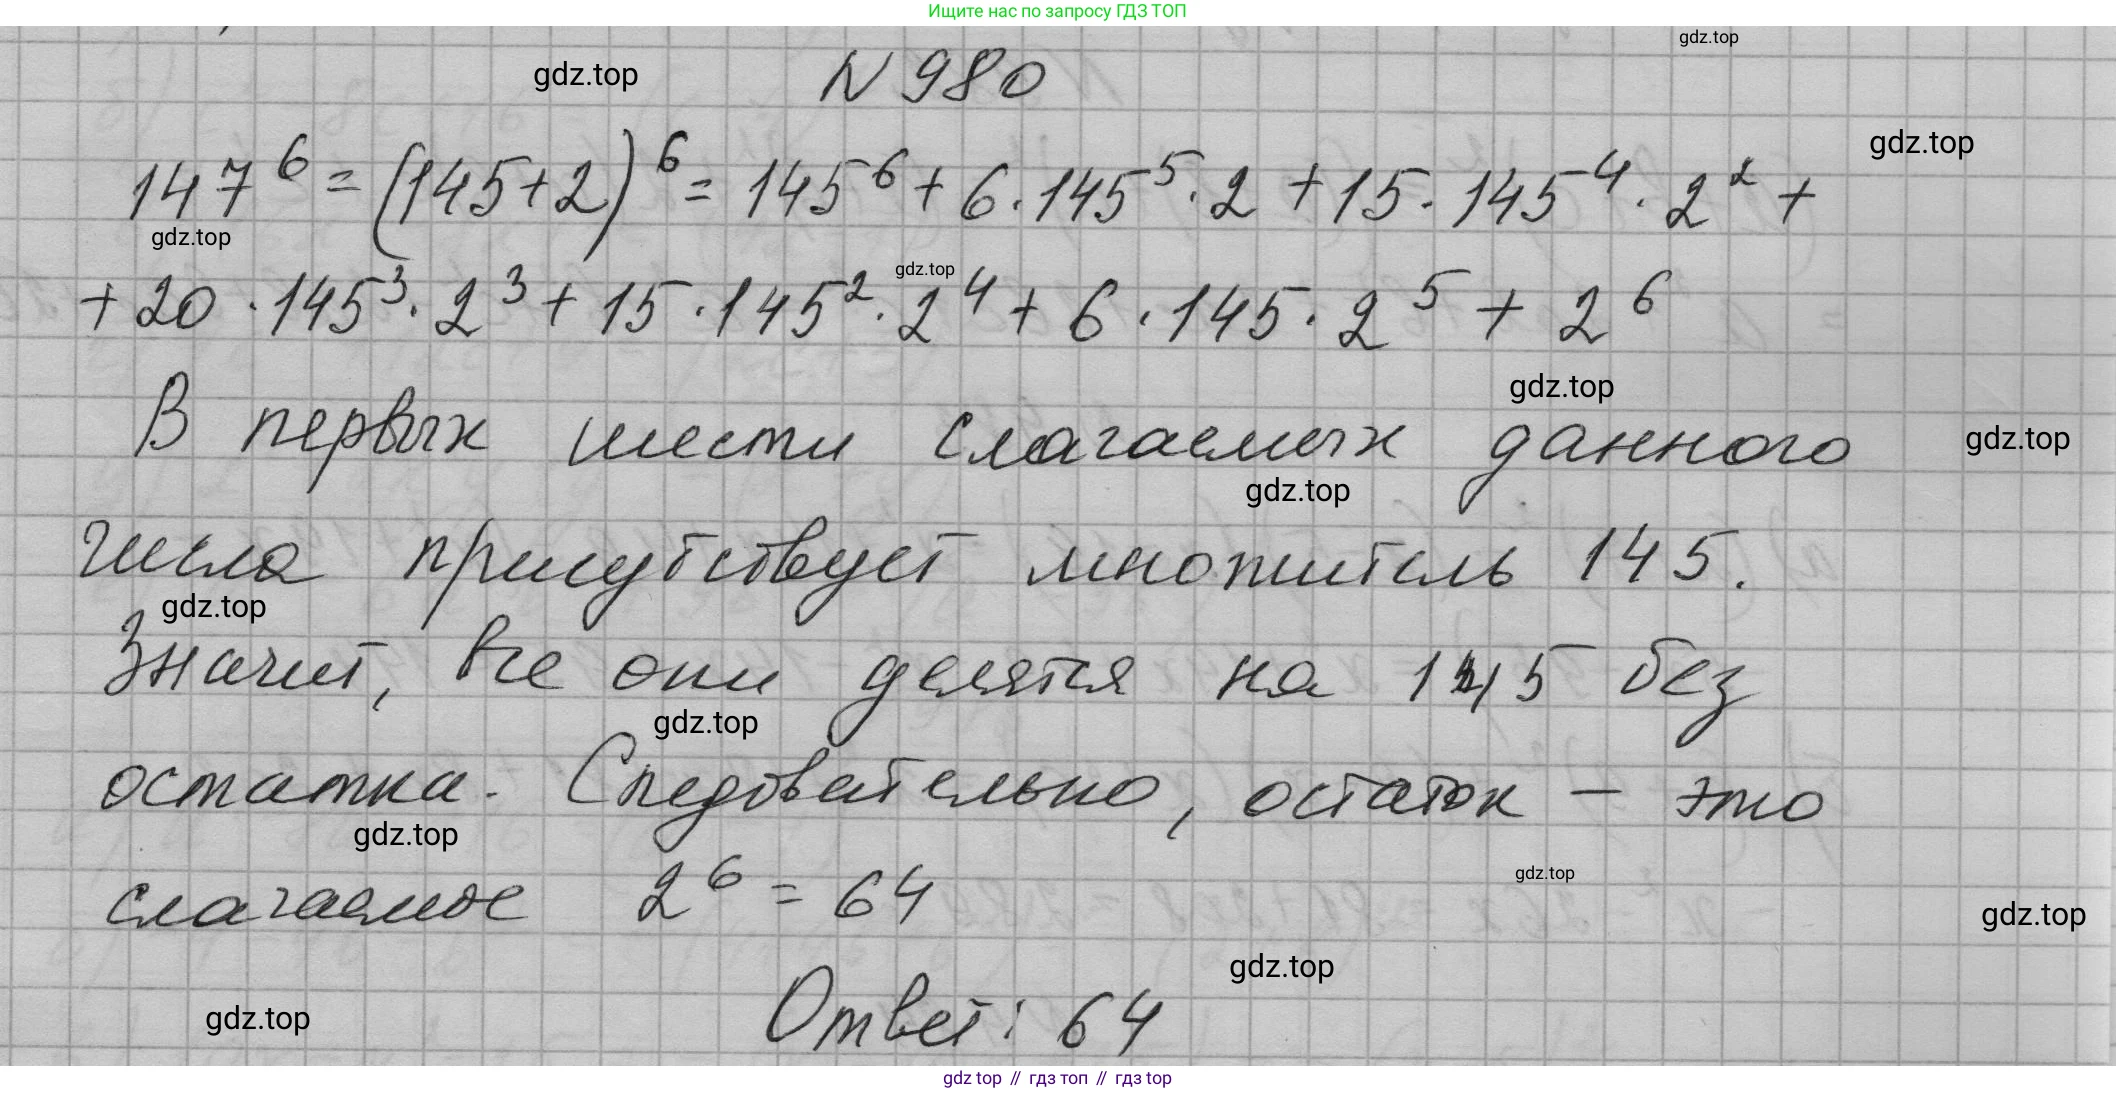 Ищите нас по запросу ГДЗ ТОП
gdz.top
gdz.top
N 980
147⁶ = (145+2)⁶ = 145⁶ + 6·145⁵·2 + 15·145⁴·2² +
gdz.top
gdz.top
+ 20·145³·2³ + 15·145²·2⁴ + 6·145·2⁵ + 2⁶
gdz.top
gdz.top
В первых шести слагаемых данного
gdz.top
gdz.top
числа присутствует множитель 145.
gdz.top
Значит, все они делятся на 145 без
gdz.top
остатка. Следовательно, остаток – это
gdz.top
слагаемое 2⁶ = 64
gdz.top
gdz.top
gdz.top
Ответ: 64
gdz.top
gdz top // гдз топ // гдз top